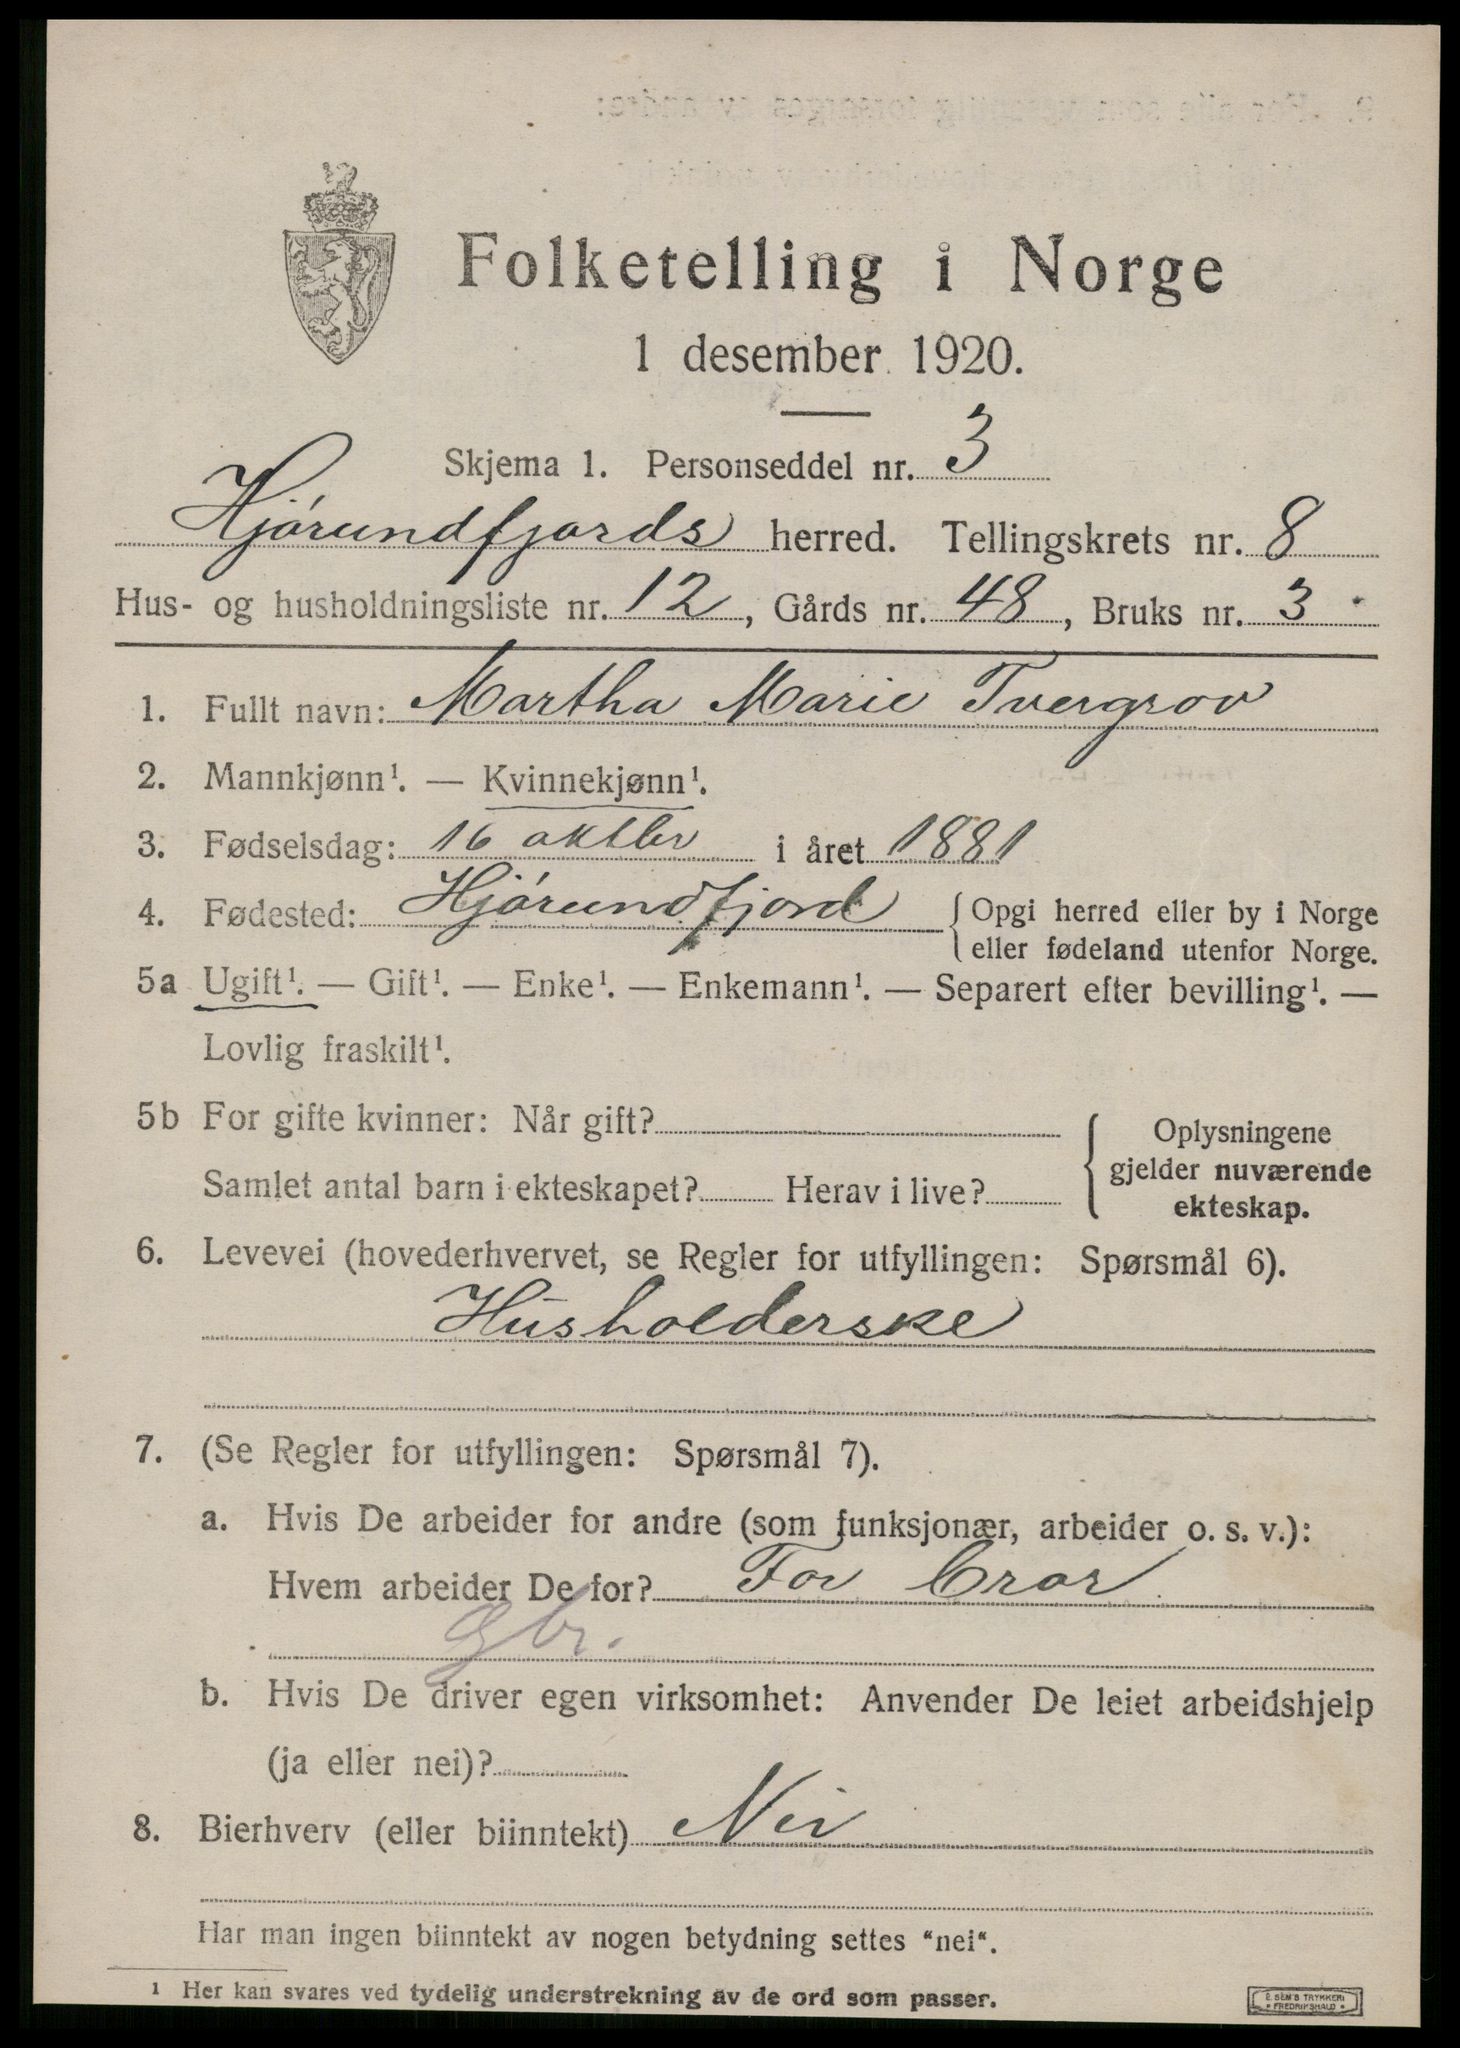 Folketelling i Norge
1 desember 1920.
Skjema 1. Personseddel nr. 3
Hjórundfjords herred. Tellingskrets nr. 8
Hus- og husholdningsliste nr. 12, Gårds nr. 48, Bruks nr. 3
1. Fullt navn: Martha Marie Tvergrov
2. Mannkjønn¹. — Kvinnekjønn¹.
3. Fødselsdag: 16 oktbr i året 1881
4. Fødested: Hjórundfjord { Opgi herred eller by i Norge
eller fødeland utenfor Norge.
5a Ugift¹. — Gift¹. — Enke¹. — Enkemann¹. — Separert efter bevilling¹. —
Lovlig fraskilt¹.
5b For gifte kvinner: Når gift?
Samlet antal barn i ekteskapet? Herav i live?
Oplysningene
gjelder nuværende
ekteskap.
6. Levevei (hovederhvervet, se Regler for utfyllingen: Spørsmål 6).
Husholderske
7. (Se Regler for utfyllingen: Spørsmål 7).
a. Hvis De arbeider for andre (som funksjonær, arbeider o. s. v.):
Hvem arbeider De for? For bror
Gbr.
b. Hvis De driver egen virksomhet: Anvender De leiet arbeidshjelp
(ja eller nei)?
8. Bierhverv (eller biinntekt) Nei
Har man ingen biinntekt av nogen betydning settes "nei".
¹ Her kan svares ved tydelig understrekning av de ord som passer.
E. SEM'S TRYKKERI
FREDRIKSHALD